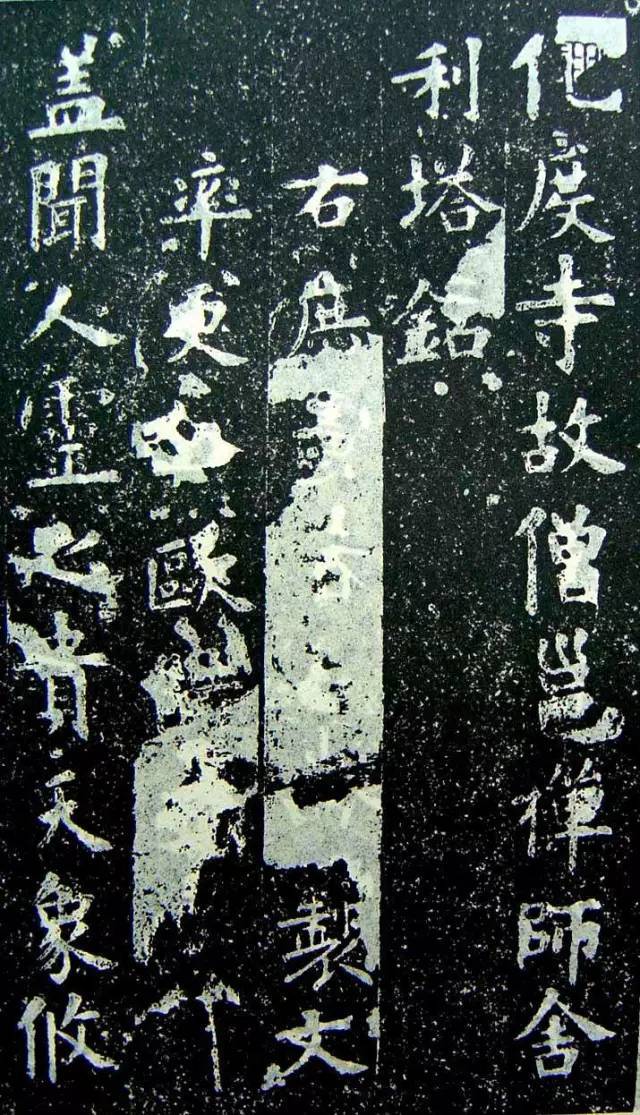 化度寺故僧邕禪師舍
利塔銘
右庶製文
率更歐
盖聞人靈之貴天象攸